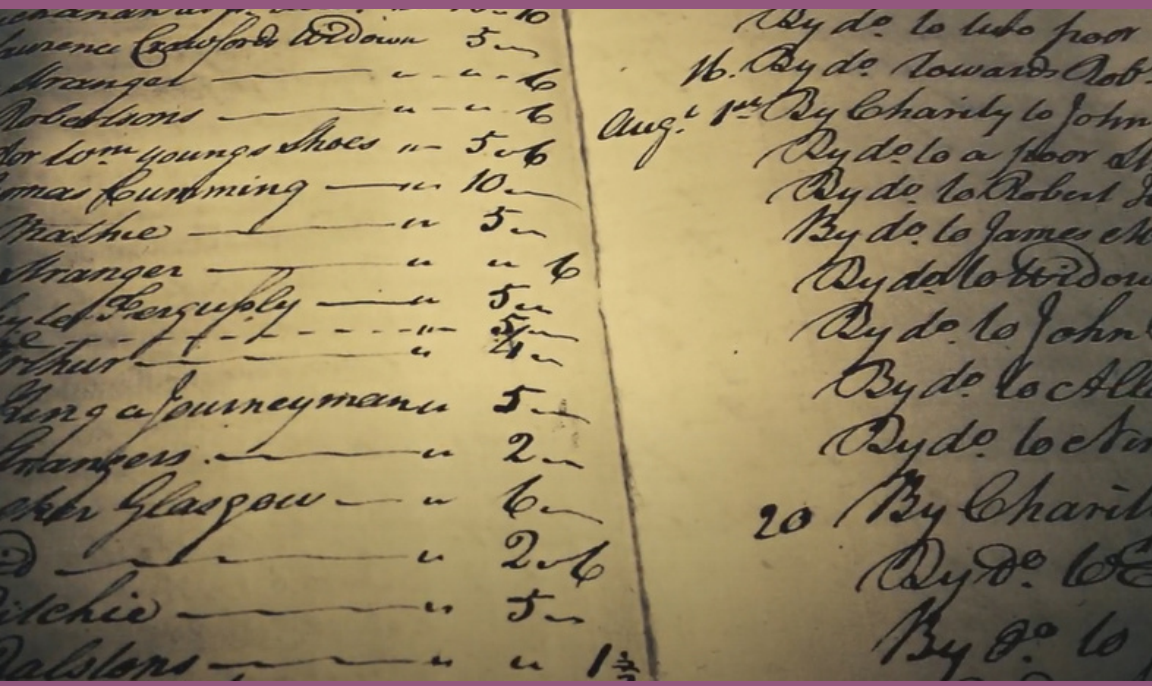 10
Laurence Crawfords Widow " 5 "
Stranger " " 6
Robertsons " " 6
for Wm youngs Shoes " 5 " 6
Thomas Cumming " 10 "
Mathie " 5 "
Stranger " " 6
5 "
" 5 "
Arthur " 4 "
King a Journeyman " 5 "
Strangers " 2 "
Glasgow " 6 "
" 2 " 6
Ritchie " 5 "
Ralstons " " 1½
By do. to two poor
16. By do. towards Rob
Augt. 1st By Charity to John
By do. to a poor St
By do. to Robert
By do. to James
By do. to Widow
By do. to John
By do. to Alle
By do. to Nin
20 By Charit
By Do. to
By Do. to